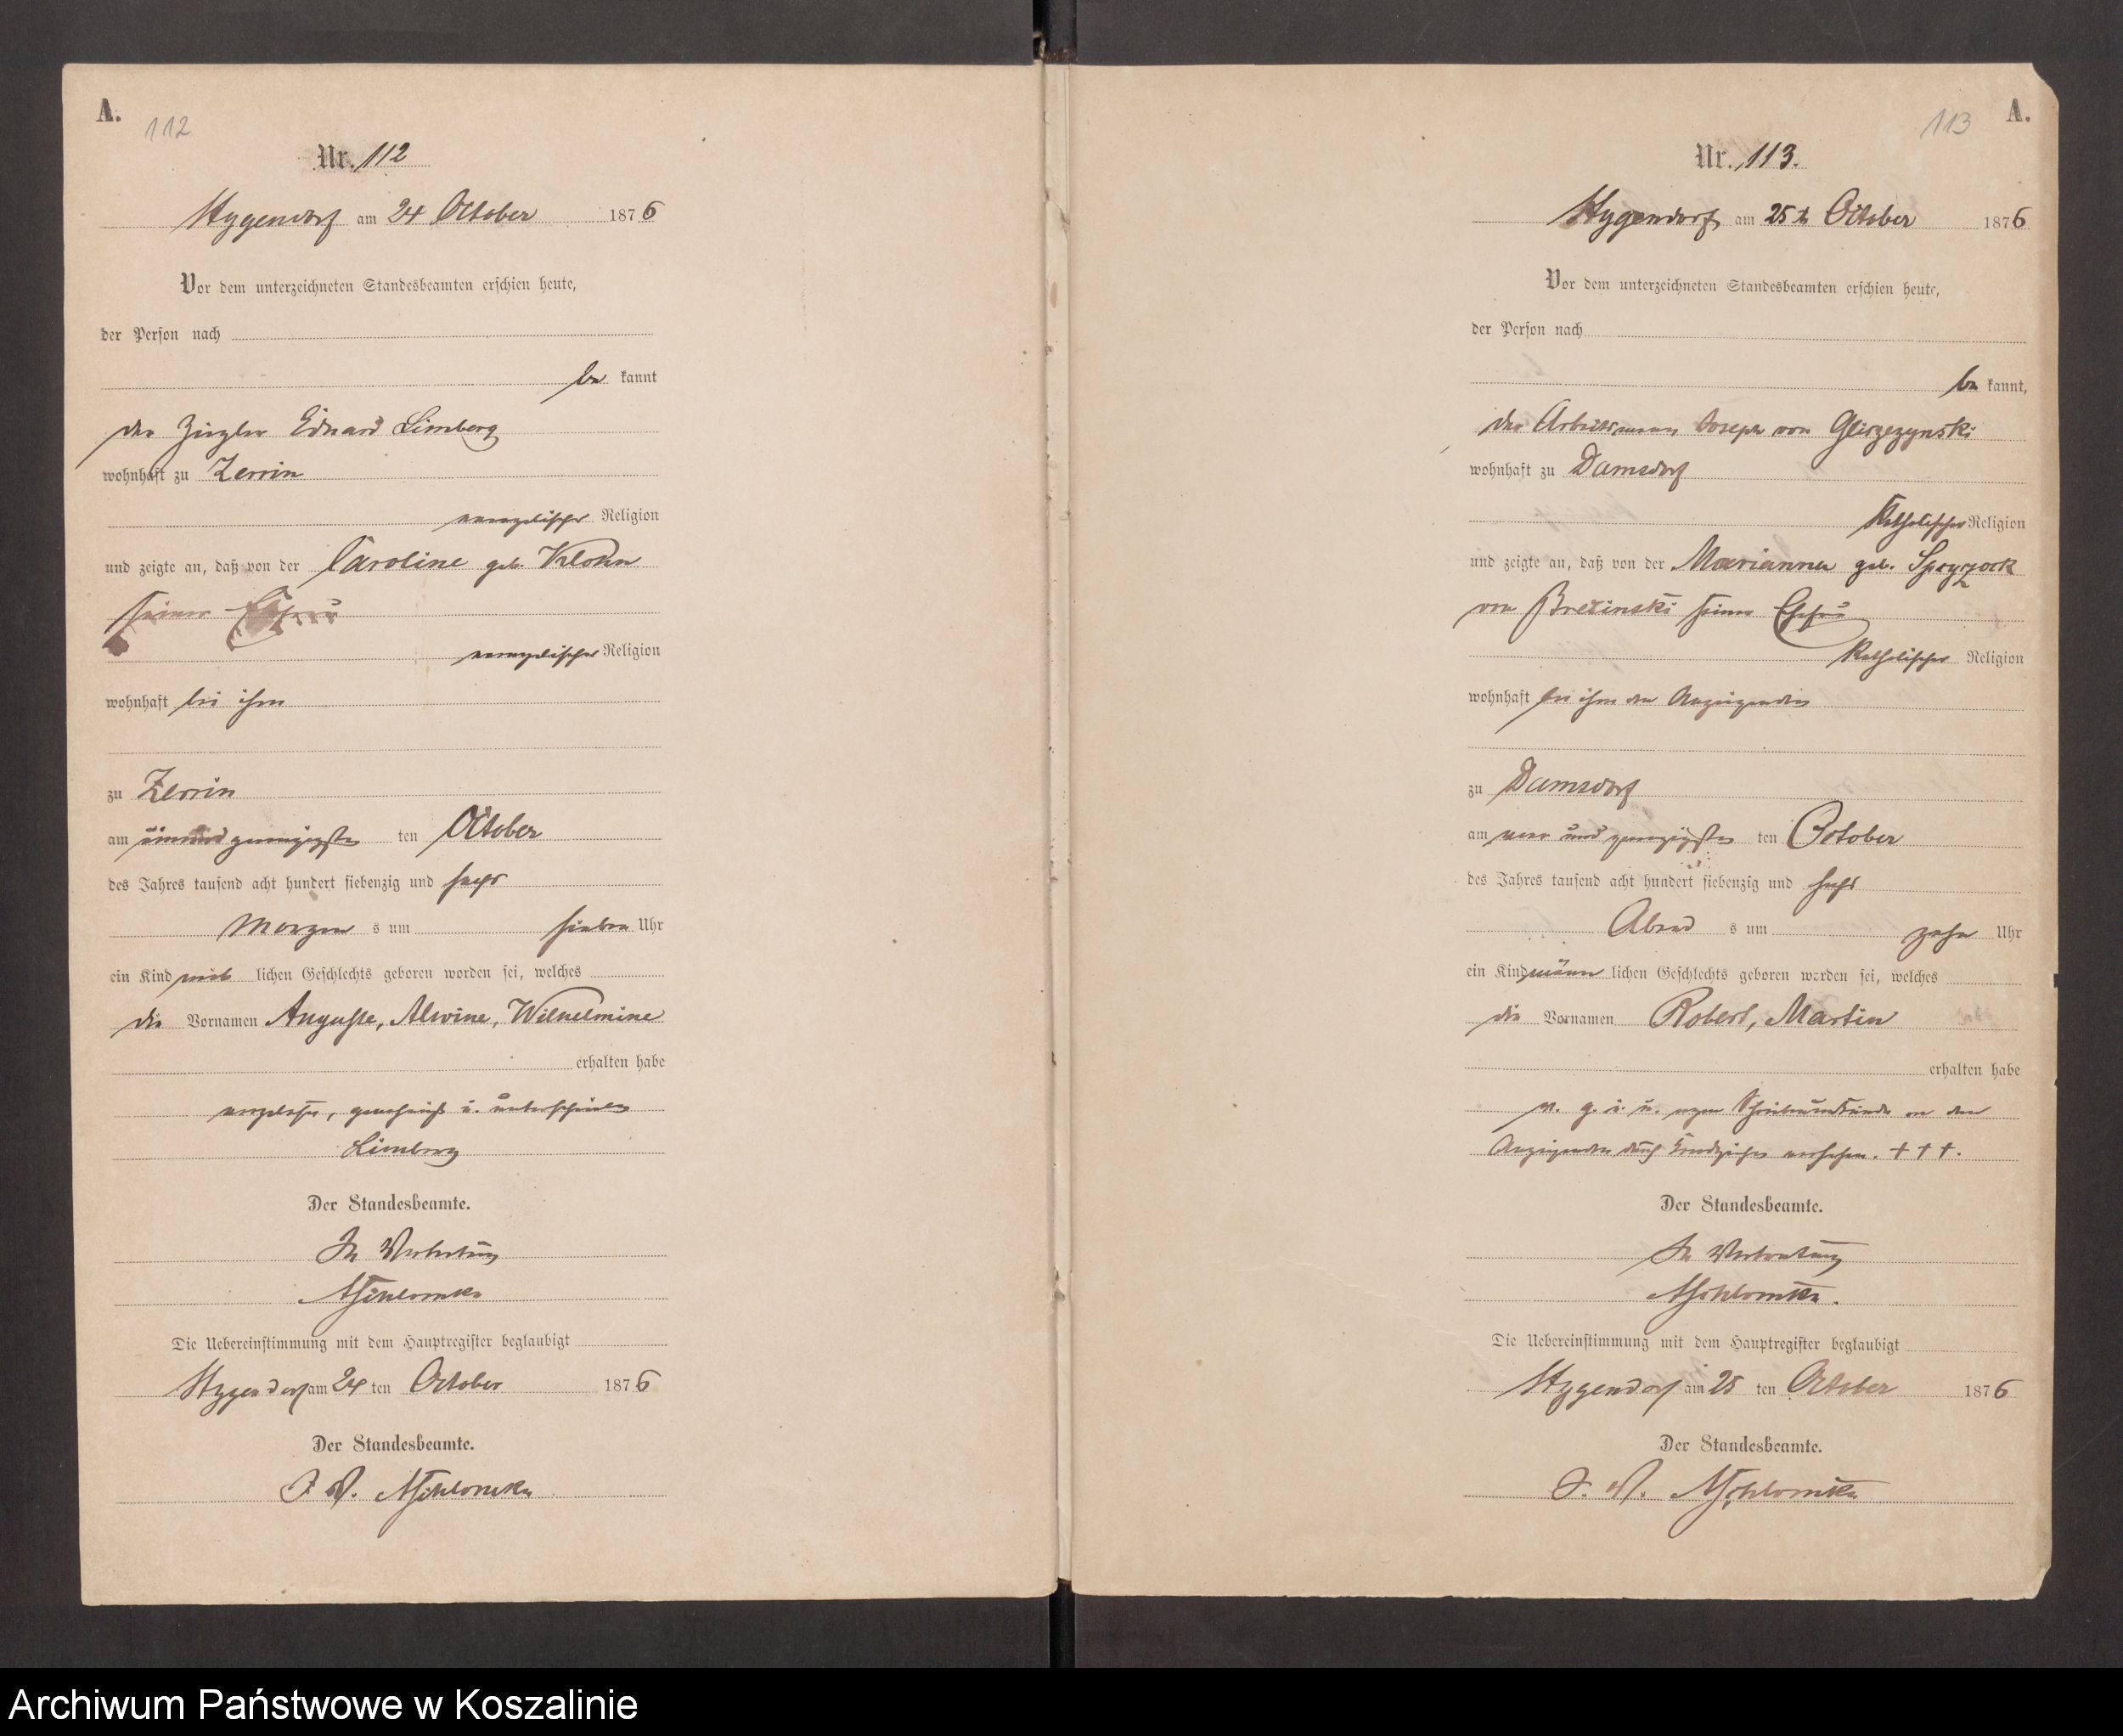 A.
112
Nr. 112
Hygendorf am 24 October 1876
Vor dem unterzeichneten Standesbeamten erschien heute,
der Person nach
be kannt
der Ziegler Eduard Limberg
wohnhaft zu Zerrin
evangelischer Religion
und zeigte an, daß von der Caroline geb. Klohn
seiner Ehefrau
evangelischer Religion
wohnhaft bei ihm
zu Zerrin
am einund zwanzigsten ten October
des Jahres tausend acht hundert siebenzig und sechs
Morgen s um sieben Uhr
ein Kind weib lichen Geschlechts geboren worden sei, welches
die Vornamen Auguste, Alwine, Wilhelmine
erhalten habe
vorgelesen, genehmigt u. unterschrieben
Limberg
Der Standesbeamte.
In Vertretung
Die Uebereinstimmung mit dem Hauptregister beglaubigt
Hygendorf am 24 ten October 1876
Der Standesbeamte.
I. V.
113
A.
Nr. 113.
Hygendorf am 25 t October 1876
Vor dem unterzeichneten Standesbeamten erschien heute,
der Person nach
be kannt,
der Arbeitsmann Joseph von
wohnhaft zu Damsdorf
Katholischer Religion
und zeigte an, daß von der Marianna geb.
von Bresinski seiner Ehefrau
Katholischer Religion
wohnhaft bei ihm dem Anzeigenden
zu Damsdorf
am vier und zwanzigsten ten October
des Jahres tausend acht hundert siebenzig und sechs
Abend s um zehn Uhr
ein Kind männ lichen Geschlechts geboren worden sei, welches
die Vornamen Robert, Martin
erhalten habe
v. g. u. u. wegen Schreibunkunde von dem
Anzeigenden durch Handzeichen versehen. + + +.
Der Standesbeamte.
In Vertretung
Die Uebereinstimmung mit dem Hauptregister beglaubigt
Hygendorf am 25 ten October 1876
Der Standesbeamte.
I. V.
Archiwum Państwowe w Koszalinie